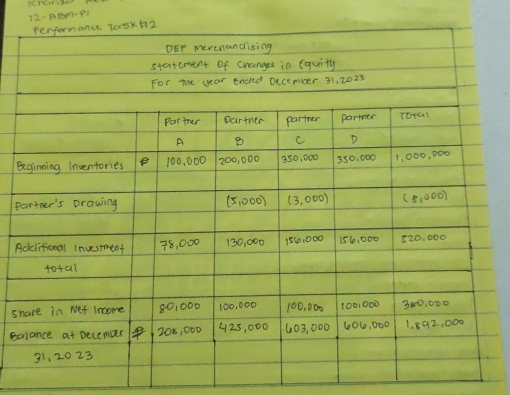 12-ABM-P1
Performance Task #2
DEF Merchandising
Statement Of Changes in Equity
For the year Ended December 31, 2023
Partner Partner partner partner TOTAL
A B C D
Beginning Inventories ₱ 100,000 200,000 350,000 350,000 1,000,000
Partner's Drawing (5,000) (3,000) (8,000)
Additional Investment 78,000 130,000 156,000 156,000 520,000
total
Share in Net Income 80,000 100,000 100,000 100,000 380,000
Balance at December ₱ 208,000 425,000 603,000 606,000 1,892,000
31, 2023